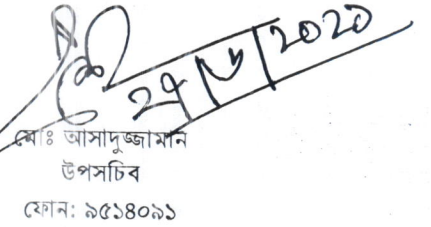 ২৭/৬/২০২০
মোঃ আসাদুজ্জামান
উপসচিব
ফোন: ৯৫১৪০৯১